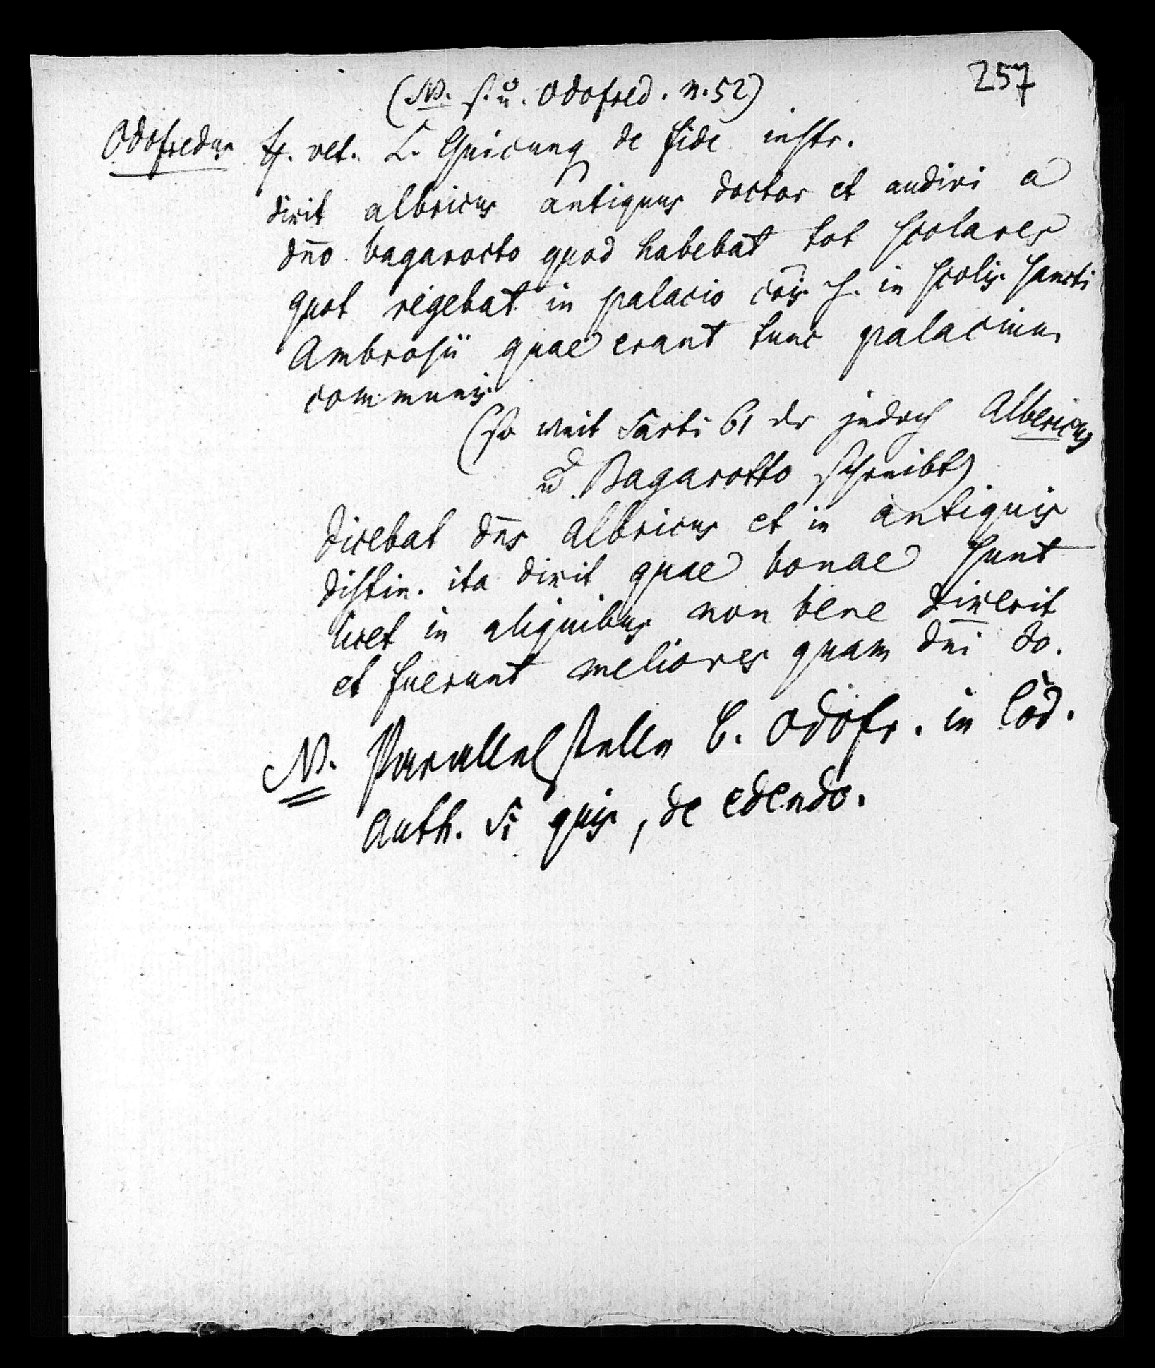 257
(N. s. u. Odofred. n. 52)
Odofredus ff. vet. L. Quicunq de fide instr.
dixit albricus antiquus doctor et audivi a
dn̄o bagarocto quod habebat tot scolares
quot regebat in palacio cōis h. in scolis sancti
Ambrosii quae erant tunc palacium
communis
(so weit Sarti 61 der jedoch Albericus
u. Bagarotto schreibt)
dicebat dn̄s albricus et in antiquis
distin. ita dixit quae bonae sunt
licet in aliquibus non bene dixerit
et fuerunt meliores quam dn̄i Jo.
N. Parallelstelle b. Odofr. in Cod.
Auth. Si quis, de edendo.